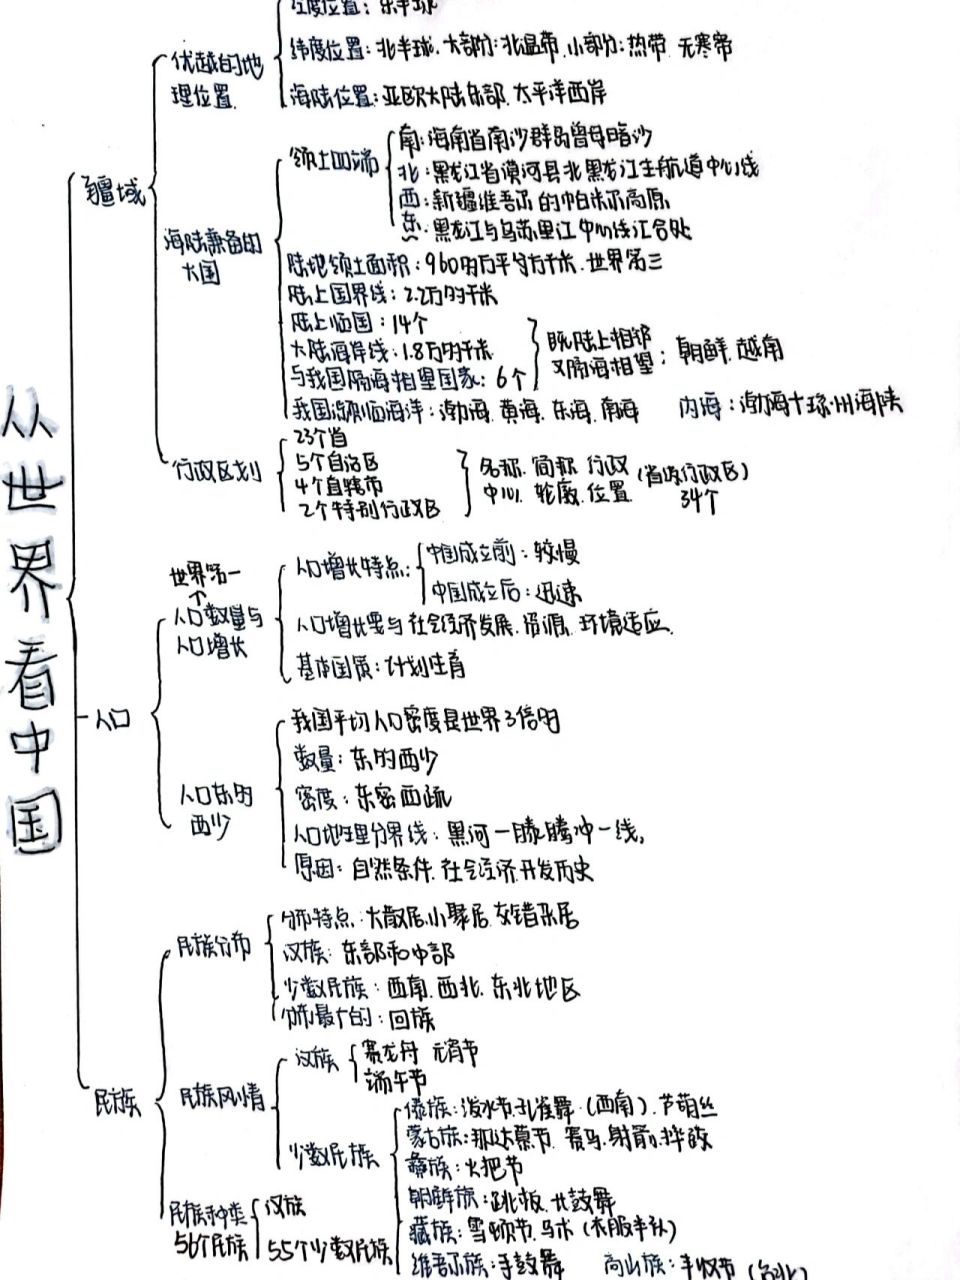 从世界看中国
疆域
优越的地理位置
经度位置：东半球
纬度位置：北半球、大部分：北温带、小部分：热带 无寒带
海陆位置：亚欧大陆东部、太平洋西岸
海陆兼备的大国
领土四端
南：海南省南沙群岛曾母暗沙
北：黑龙江省漠河县北黑龙江主航道中心线
西：新疆维吾尔的帕米尔高原
东：黑龙江与乌苏里江中心线汇合处
陆地领土面积：960多万平方千米、世界第三
陆上国界线：2.2万多千米
陆上临国：14个
大陆海岸线：1.8万多千米
与我国隔海相望国家：6个
既陆上相邻
又隔海相望：朝鲜、越南
我国濒临海洋：渤海、黄海、东海、南海 内海：渤海+琼州海陕
行政区划
23个省
5个自治区
4个直辖市
2个特别行政区
名称、简称、行政
中心、轮廓、位置（省级行政区）
34个
人口
世界第一
人口数量与人口增长
人口增长特点：
中国成立前：较慢
中国成立后：迅速
人口增长要与社会经济发展、资源、环境适应、
基本国策：计划生育
人口东多西少
我国平均人口密度是世界3倍多
数量：东多西少
密度：东密西疏
人口地理分界线：黑河一腾腾冲一线，
原因：自然条件、社会经济、开发历史
民族
民族分布
分布特点：大散居、小聚居、交错杂居
汉族：东部和中部
少数民族：西南、西北、东北地区
分布最广的：回族
民族风情
汉族
赛龙舟 元宵节
端午节
少数民族
傣族：泼水节、孔雀舞（西南）、芦葫丝
蒙古族：那达慕节、赛马、射箭、摔跤
彝族：火把节
朝鲜族：跳板、长鼓舞
藏族：雪顿节、马术
维吾尔族：手鼓舞 高山族：丰收节（台北）
民族种类
56个民族
汉族
55个少数民族